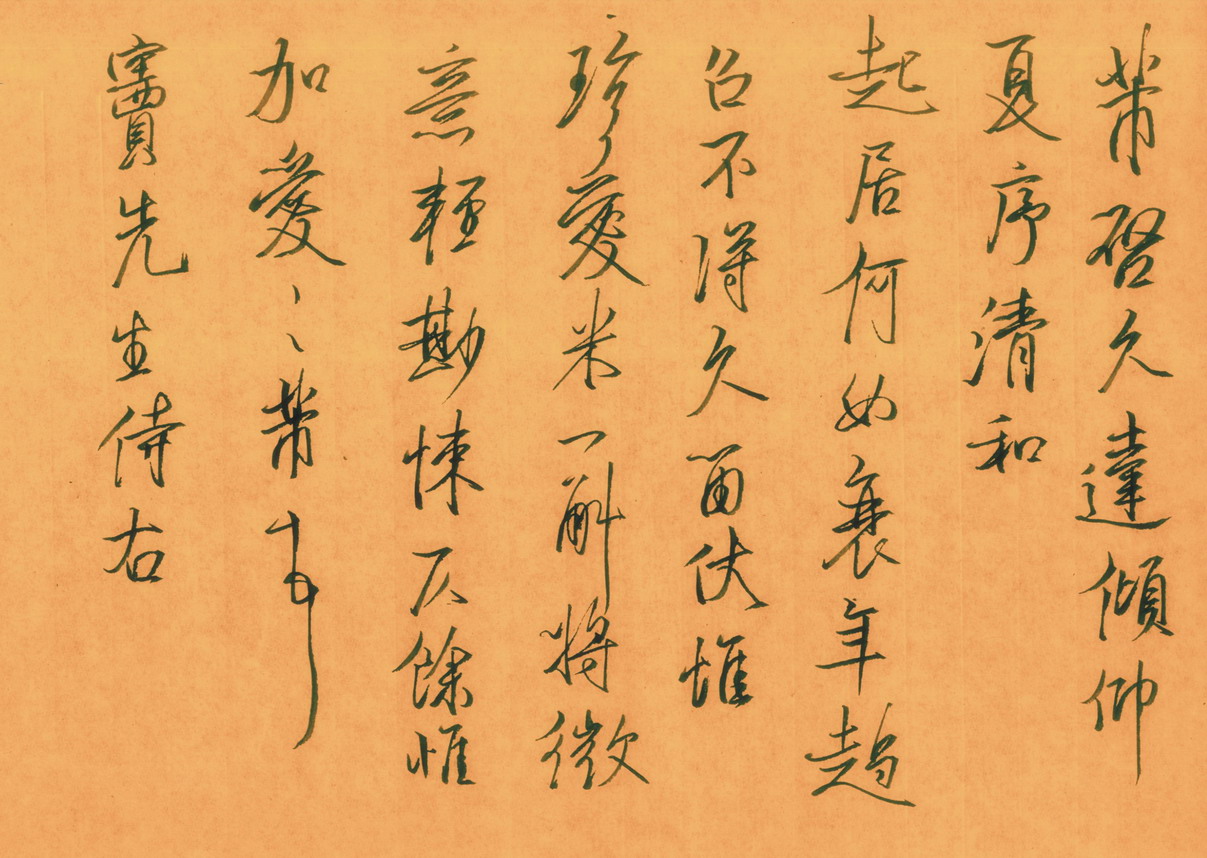 芾啓久違傾仰
夏序清和
起居何如衰年趨
召不得久留伏惟
珍愛米一斛將微
意輕尠悚仄餘惟
加愛〻〻芾頓首
竇先生侍右